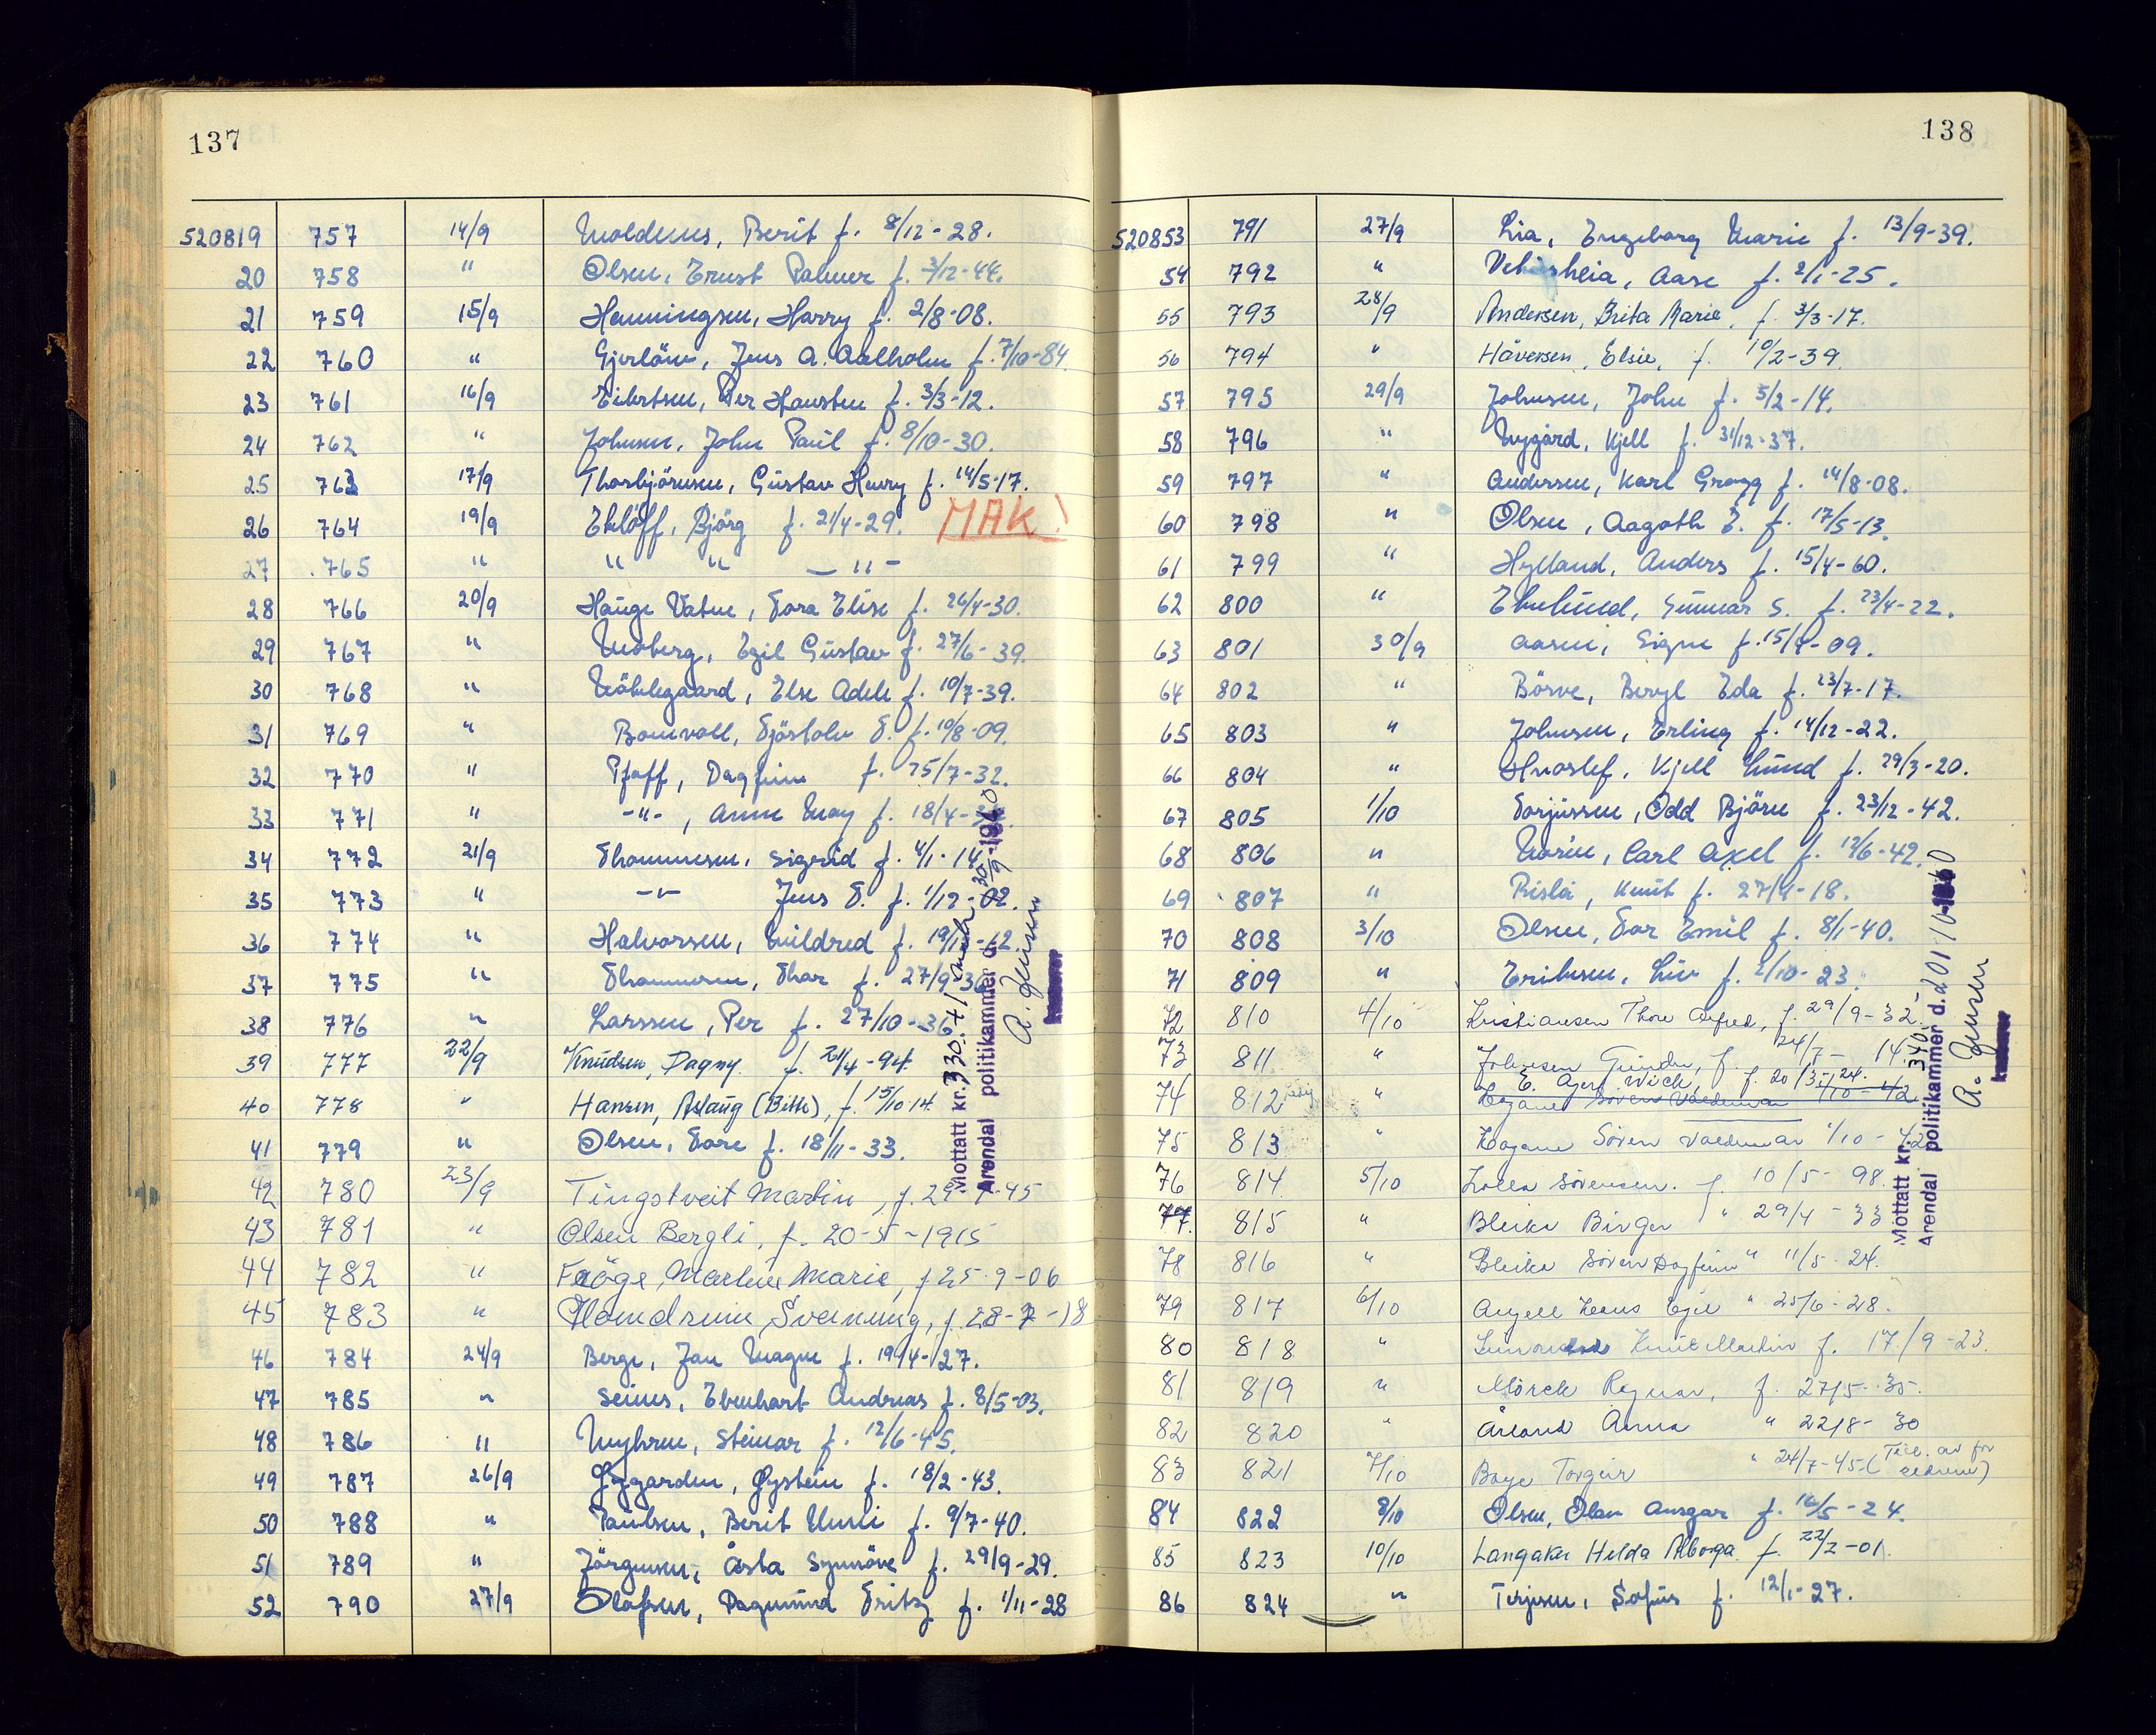 137
520819 757 14/9 Moldenes, Berit f. 8/12-28.
20 758 " Olsen, Ernst Palmer f. 3/12-44.
21 759 15/9 Henningsen, Harry f. 2/8-08.
22 760 " Gjerlöw, Jens A. Aalholm f. 7/10-84.
23 761 16/9 Eilertsen, Per Hansten f. 3/3-12.
24 762 " Johnsen, John Paul f. 8/10-30.
25 763 17/9 Thorbjörnsen, Gustav Henry f. 14/5-17.
26 764 19/9 Eklöff, Bjorg f. 21/4-29. MAK!
27 765 " " " — " —
28 766 20/9 Hauge Vatne, Tora Elise f. 26/4-30.
29 767 " Moberg, Egil Gustav f. 27/6-39.
30 768 " Nöklegaard, Else Adele f. 10/7-39.
31 769 " Bomvoll, Tjöstolv T. f. 10/8-09.
32 770 " Pfaff, Dagfinn f. 25/7-32.
33 771 " -"- , Anne May f. 18/4-
34 772 21/9 Thommesen, Sigrid f. 4/1-14.
35 773 " -"- Jens T. f. 1/12-02.
36 774 " Halvorsen, Mildred f.
37 775 " Thommesen, Thor f. 27/9-36
38 776 " Larssen, Per f. 27/10-36
39 777 22/9 Knudsen, Dagny f. 21/4-94.
40 778 " Hansen, Aslaug (Bitte), f. 15/10 14.
41 779 " Olsen, Tore f. 18/11-33.
42 780 23/9 Tingstveit Martin, f. 29 45
43 781 " Olsen Bergli, f. 20-5-1915
44 782 " Marie, f 25-9-06
45 783 " Sveinung, f. 28-7-18
46 784 24/9 Berge, Jan Magne f. 19/4-27.
47 785 " Seines, Evenhart Andreas f. 8/5-03.
48 786 " Myhren, Steinar f. 12/6-45.
49 787 26/9 Øygarden, Øystein f. 18/2-43.
50 788 " Paulsen, Berit Unni f. 9/7-40.
51 789 " Jörgensen, Åsta Synnöve f. 29/9-29.
52 790 27/9 Olafsen, Dagmund Fritz f. 1/11-28
Mottatt kr. 330.+1
Arendal politikammer d. 30/9-1960
A. Jensen
kasserer
138
520853 791 27/9 Lia, Engeborg Marie f. 13/9-39.
54 792 " Aase f. 2/1-25.
55 793 28/9 Andersen, Brita Marie, f. 3/3-17.
56 794 " Håversen, Elsie, f. 10/2-39.
57 795 29/9 Johnsen, John f. 5/2-14.
58 796 " Nygård, Kjell f. 31/12-37.
59 797 " Andersen, Karl Gragg f. 14/8-08.
60 798 " Olsen, Aagoth E. f. 17/5-13.
61 799 " Hylland, Anders f. 15/4-60.
62 800 " Gunnar S. f. 23/4-22.
63 801 30/9 Aasen, Signe f. 15/9-09.
64 802 " Börve, Beryl Eda f. 23/7-17.
65 803 " Johnsen, Erling f. 14/12-22.
66 804 " Hvoslef, Kjell Lund f. 29/3-20.
67 805 1/10 Torjussen, Odd Björn f. 23/12-42.
68 806 " Carl Axel f. 12/6-42.
69 807 " Rislå, Knut f. 27/9-18.
70 808 3/10 Olsen, Tor Emil f. 8/1-40.
71 809 " Eriksen, Liv f. 2/10-23.
72 810 4/10 Kristiansen Thore Alfred, f. 29/9-32.
73 811 " Johnsen Gunder, f. 24/7-14.
74 812 " f. 20/3-24.
Søren Valdemar 1/10-42
75 813 " Søren Valdemar 1/10-42
76 814 5/10 Sørensen. f. 10/5-98.
77. 815 " Bleika Birger " 29/4-33
78 816 " Bleika Søren Dagfinn " 11/5-24.
79 817 6/10 Angell Hans Egil " 25/6-28.
80 818 " Knut Martin f. 17/9-23.
81 819 " Mörch Ragnar, f. 27/5-35.
82 820 " Årland Anna " 22/8-30
83 821 7/10 Boye Torgeir " 24/7-45 (Till. av for
84 822 8/10 Olsen, Olav Ansgar f. 16/5-24.
85 823 10/10 Langaker Helda Alborga f. 22/2-01.
86 824 " Terjesen, Sofus f. 12/1-27.
Mottatt kr. 340,-
Arendal politikammer d.
A. Jensen
kasserer